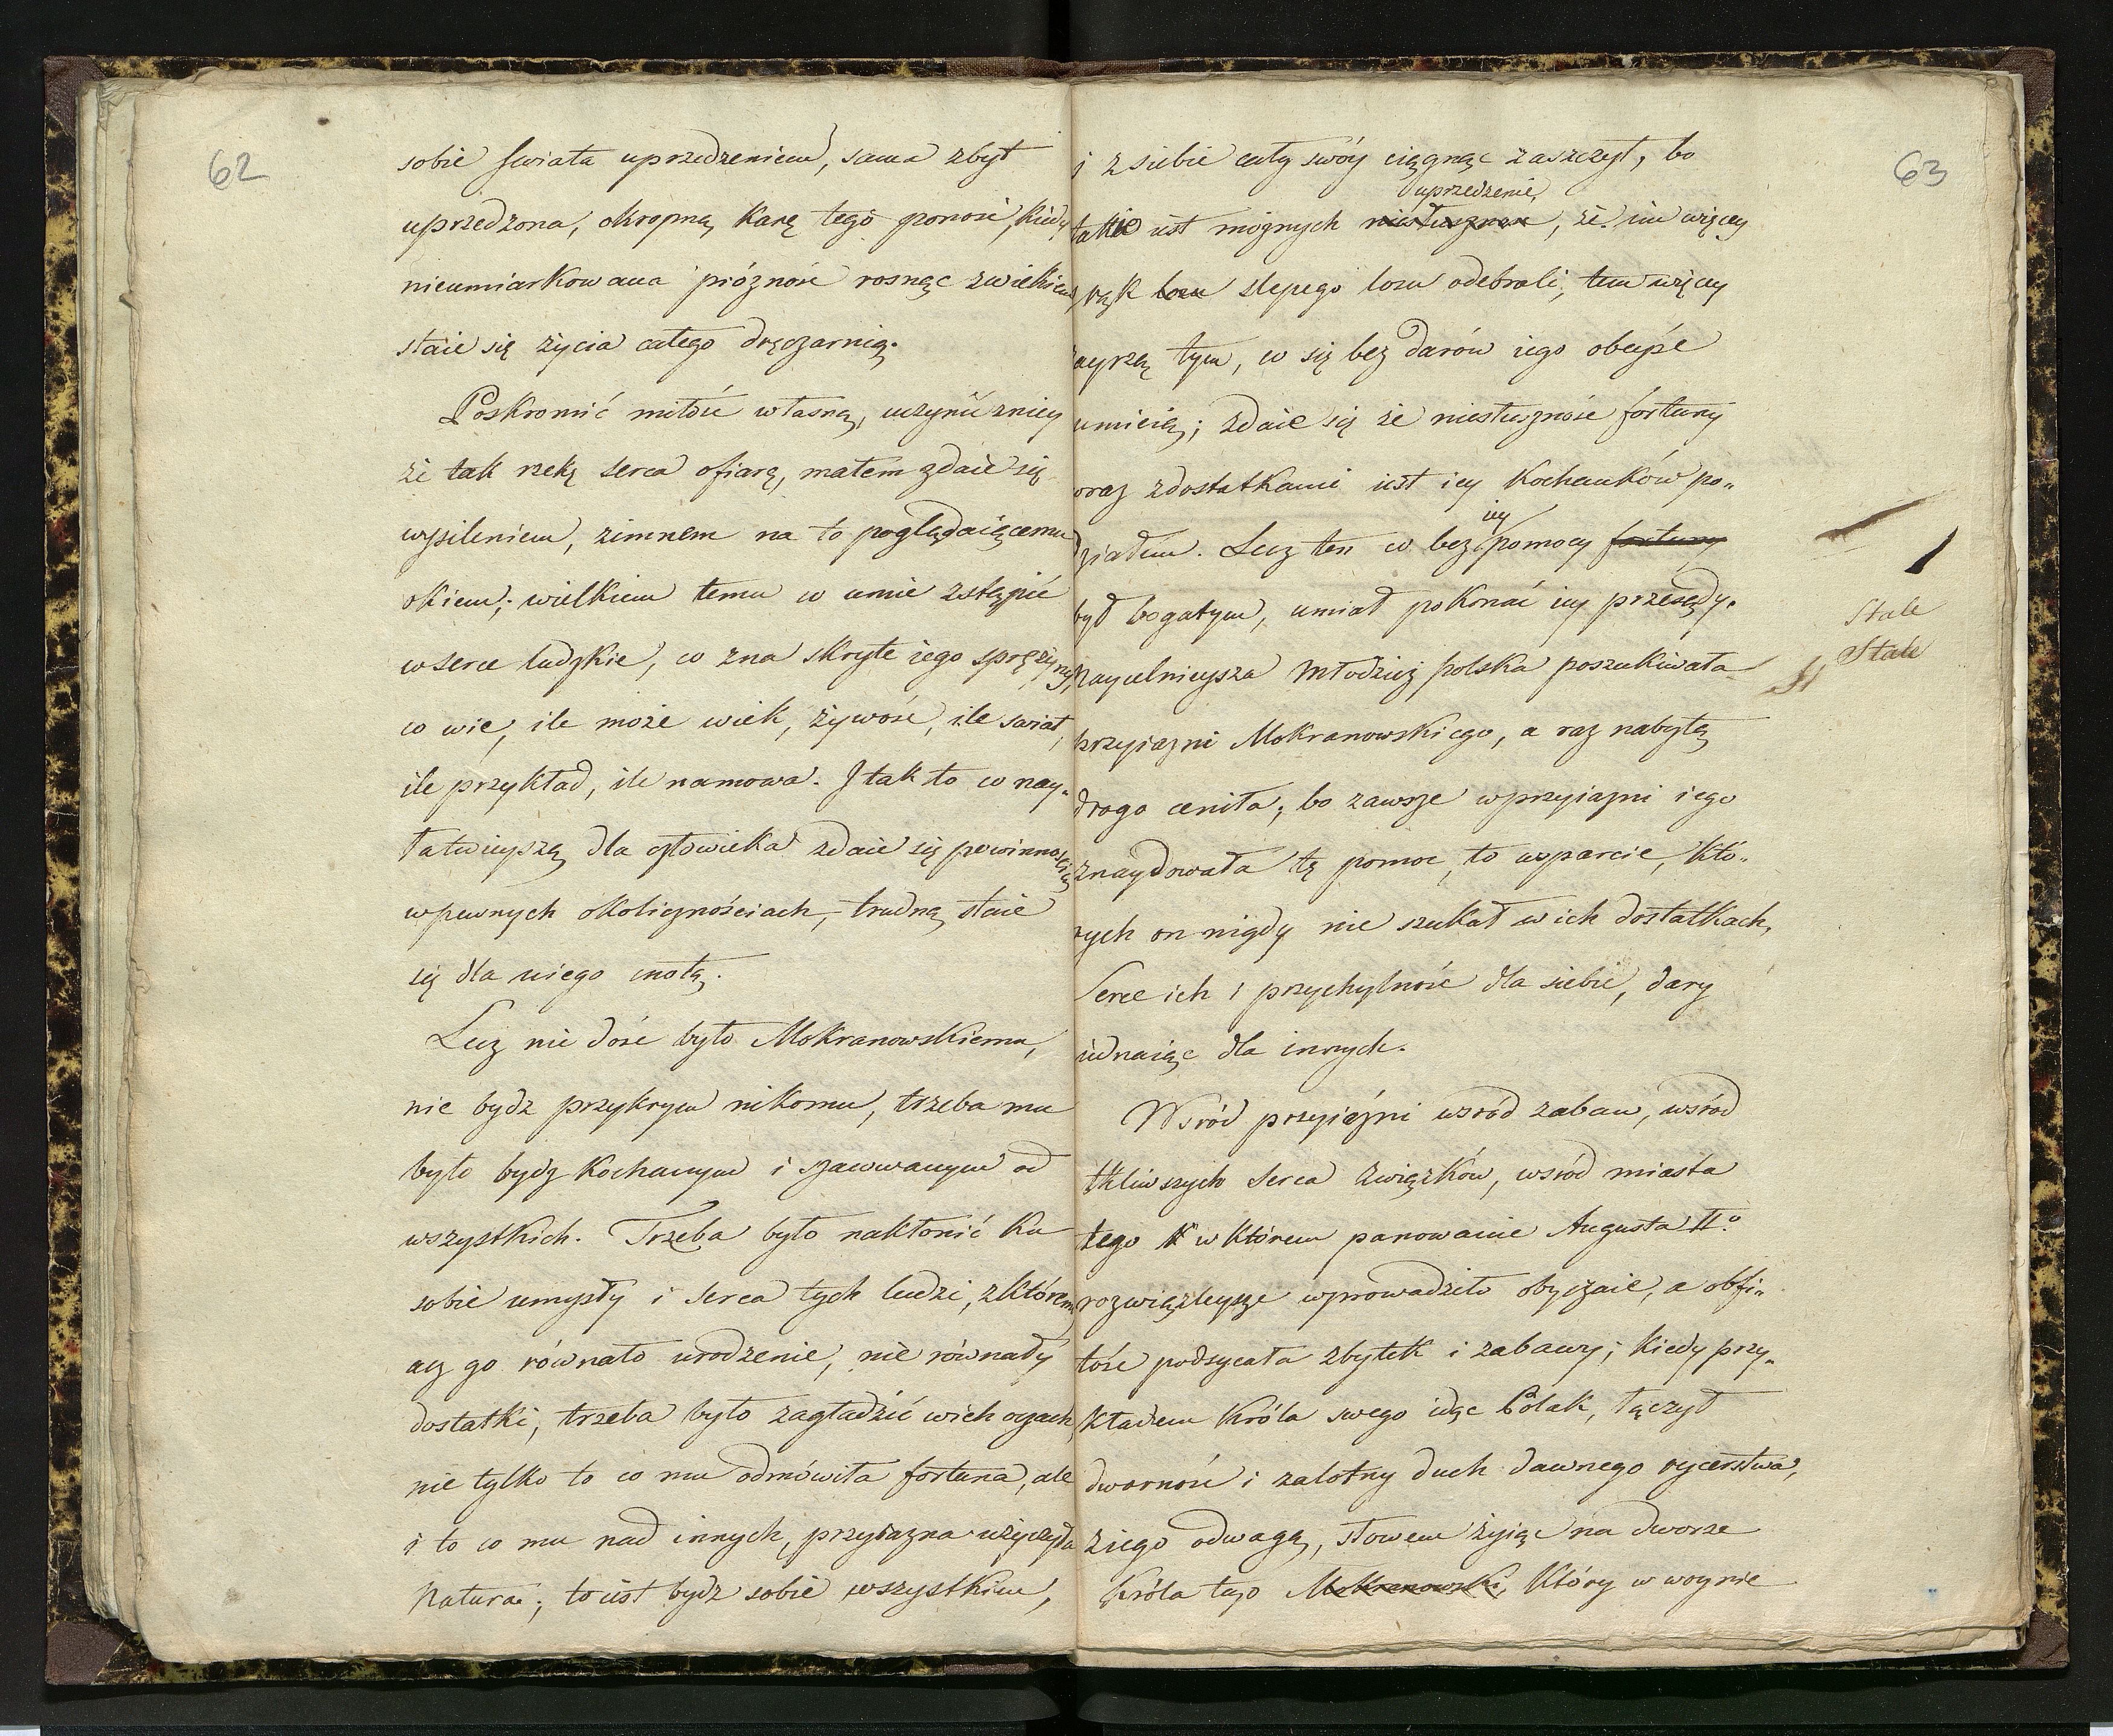 62
sobie swiata uprzedzeniem, sama zbyt
uprzedzona, okropną karę tego ponosi, kiedy
nieumiarkowana próżność rosnąc zwiekiem,
staie się życia całego dręczarnią.
Poskromić miłość własną, uczynić zniey
że tak rzekę serca ofiarę, małem zdaie się
wysileniem, zimnem na to poglądaiącemu
okiem; wielkiem temu co umie zstąpić
wserce ludzkie, co zna skryte iego sprężyny,
co wie, ile może wiek, żywość, ile swiat,
ile przykład, ile namowa. I tak to co nay„
łatwieyszą dla człowieka zdaie się powinnością
wpewnych okolicznościach, trudną staie
się dla niego cnotą.
Lecz nie dość było Mokranowskiemu,
nie bydz przykrym nikomu, trzeba mu
było bydz kochanym i szacowanym od
wszystkich. Trzeba było nakłonić ku
sobie umysły i serca tych ludzi, zktóremi
acz go równało urodzenie, nie równały
dostatki, trzeba było zagładzić wich oczach,
nie tylko to co mu odmówiła fortuna, ale
i to co mu nad innych, przyiazna użyczyła
Natura; to iest bydz sobie wszystkiem,
63
i zsiebie cały swóy ciągnąc zaszczyt, bo
uprzedzenie,
takie iest możnych niesłuszne, że im więcey
rąk losu slepego losu odebrali, tem więcey
zayrzą tym, co się bez darów iego obeyść
umieią; zdaie się że niesłuszność fortuny
oraz zdostatkami iest iey kochanków po„
iey
działem. Lecz ten co bez pomocy fortuny
był bogatym, umiał pokonać iey przesądy.
Stale
Stale
Naycelnieysza Młodzież polska poszukiwała
przyiazni Mokranowskiego, a raz nabytą
drogo ceniła; bo zawsze wprzyiazni iego
znaydowała tę pomoc, to wsparcie, któ„
rych on nigdy nie szukał w ich dostatkach,
Serce ich i przychylność dla siebie, dary
iednaiąc dla innych.
Wsród przyiazni wsród zabaw, wsród
tkliwszych serca związków, wsród miasta
tego w którem panowanie Augusta II.o
rozwiązleysze wprowadziło obyczaie, a obfi„
tość podsycała zbytek i zabawy; kiedy przy„
kładem Króla swego idąc Polak, łączył
dworność i zalotny duch dawnego rycerstwa,
ziego odwagą, słowem żyiąc na dworze
Króla tego Mokranowski, który w woynie